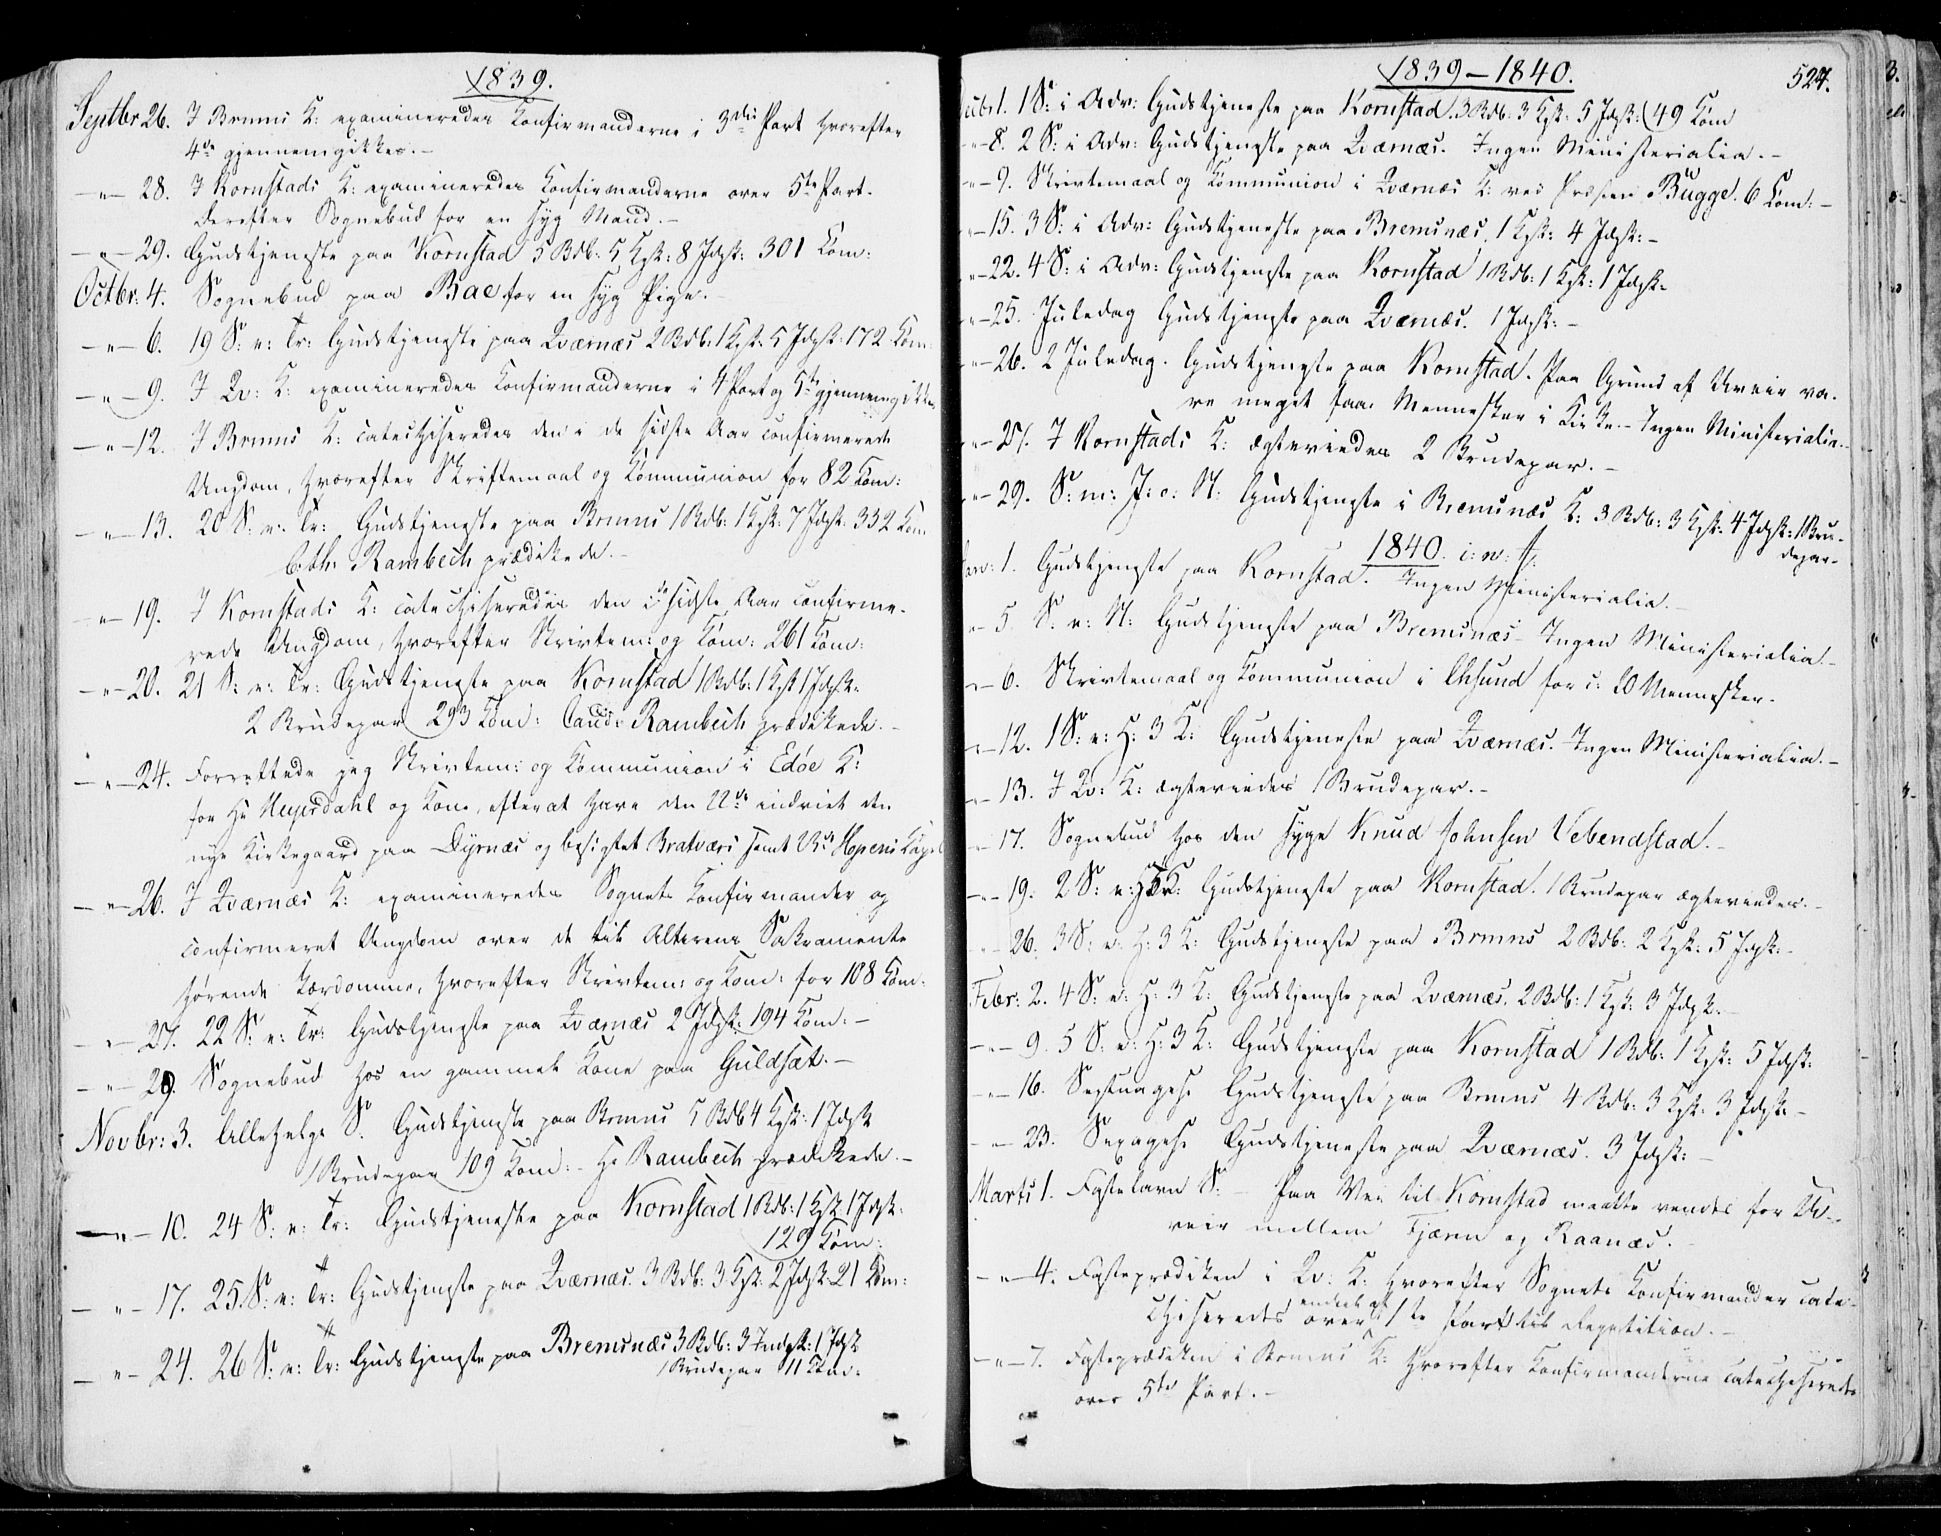 1839.
Septbr 26. I Brmns K: examineredes Konfirmanderne i 3die Part hvorefter
4de gjennemgikkes. -
- " - 28. I Kornstads K: examineredes Konfirmanderne over 5te Part.
derefter Sognebud for en syg Mand. -
- " - 29. Gudstjeneste paa Kornstad 5 Bdb: 5 Kgk: 8 Jdgk: 301 Kom:
Octbr: 4. Sognebud paa Bae for en syg Pige. -
- " - 6. 19 S: e: Tr: Gudstjeneste paa Qværnæs 2 Bdb: 1 Kgk: 5 Jdgk: 172 Kom:
- " - 9. I Qv: K: examineredes Konfirmanderne i 4 Part og 5te gjennemgikkes
- " - 12. I Brmns K: catechiseredes den i de sidste Aar confirmerede
Ungdom, hvorefter Skriftemaal og Kommunion for 82 Kom:
- " - 13. 20 S: e: Tr: Gudstjeneste paa Brmns 1 Bdb: 1 Kgk: 7 Jdgk: 332 Kom
Cth: Rambech prædikede. -
- " - 19. I Kornstads K: catechiseredes den i de sidste Aar confirme-
rede Ungdom, hvorefter Skrivtem: og Kom: 261 Kom:
- " - 20. 21 S: e: Tr: Gudstjeneste paa Kornstad 1 Bdb: 1 Kgk 1 Jdgk:
2 Brudepar 293 Kom: Cand: Rambech prædikede. -
- " - 24. Forrettede jeg Skrivtem: og Kommunion i Edøe K:
for Hr Heyerdahl og Kone, efterat have den 22de indviet den
nye Kirkegaard paa Dyrnæs og besigtet Bratværs samt Hopens Kapel
- " - 26. I Qværnæs K: examineredes Sognets Konfirmander og
confirmeret Ungdom over de til Alterens Sakramente
hørende Lærdomme, hvorefter Skrivtem: og Kom: for 108 Kom:
- " - 27. 22 S: e: Tr: Gudstjeneste paa Qværnæs 2 Jdgk: 194 Kom: -
- " - 29. Sognebud hos en gammel Kone paa Guldsæt. -
Novbr: 3. Allehelge S: Gudstjeneste paa Brmns 5 Bdb 4 Kgk: 1 Jdgk
1 Brudepar 109 Kom: - Hr Rambech prædikede. -
- " - 10. 24 S: e: Tr: Gudstjeneste paa Kornstad 1 Bdb: 1 Kgk 1 Jdgk:
129 Kom:
- " - 17. 25. S: e: Tr: Gudstjeneste paa Qværnæs. 3 Bdb: 3 Kgk. 2 Jdgk 21 Kom:
- " - 24. 26 S: e: Tr: Gudstjeneste paa Bremsnæs 3 Bdb: 3 Indgk: 1 Jdgk
1 Brudepar 11 Kom:
1839 - 1840.
527.
1. 1 S: i Adv: Gudstjeneste paa Kornstad. 3 Bdb: 3 Kgk: 5 Jdgk: 49 Kom
- " - 8. 2 S: i Adv: Gudstjeneste paa Qværnæs. Ingen Ministerialia. -
- " - 9. Skrivtemaal og Kommunion i Qværnæs K: ved Præsten Bugge. 6 Kom: -
- " - 15. 3 S: i Adv: Gudstjeneste paa Bremsnæs. 1 Kgk: 4 Jdgk: -
- " - 22. 4 S: i Adv: Gudstjeneste paa Kornstad 1 Bdb: 1 Kgk: 1 Jdgk:
- " - 25. Juledag Gudstjeneste paa Qværnæs. 1 Jdgk: -
- " - 26. 2 Juledag. Gudstjeneste paa Kornstad. Paa Grund af Uveir va-
re meget faa Mennesker i Kirke. - Ingen Ministerialia. -
- " - 27. I Kornstads K: ægteviedes 2 Brudepar. -
- " - 29. S: m: J: o: N: Gudstjeneste i Bremsnæs K: 3 Bdb: 3 Kgk: 4 Jdgk: 1 Bru-
depar-
1840. i: n: J:
Jan: 1. Gudstjeneste paa Kornstad. Ingen Ministerialia. -
- " - 5. S: e: N: Gudstjeneste paa Bremsnæs - Ingen Ministerialia. -
- " - 6. Skrivtemaal og Kommunion i Ohsund for c: 20 Mennesker.
- " - 12. 1 S: e: H: 3 K: Gudstjeneste paa Qværnæs. Ingen Ministerialia. -
- " - 13. I Qv: K: ægteviedes 1 Brudepar. -
- " - 17. Sognebud hos den syge Knud Johnsen Vebenstad. -
- " - 19. 2 S: e: H: 3 K: Gudstjeneste paa Kornstad. 1 Brudepar ægteviedes. -
- " - 26. 3 S: e: H: 3 K: Gudstjeneste paa Brmns 2 Bdb: 2 Kgk: 5 Jdgk: -
Febr: 2. 4 S: e: H: 3 K: Gudstjeneste paa Qværnæs. 2 Bdb: 1 Kgk: 3 Jdgk: -
- " - 9. 5 S: e: H: 3 K: Gudstjeneste paa Kornstad 1 Bdb: 1 Kgk: 5 Jdgk:
- " - 16. Septuages: Gudstjeneste paa Brmns 4 Bdb: 3 Kgk: 3 Jdgk: -
- " - 23. Sexages: Gudstjeneste paa Qværnæs. 3 Jdgk: -
Marts 1. Fastelavn S: - Paa Vei til Kornstad maatte vendes for U-
veir mellem Tjærn og Raanæs. -
- " - 4. Fasteprædiken i Qv: K: hvorefter Sognets Konfirmander cate-
chiseredes over 1te Part til Repetition. -
- " - 7. Fasteprædiken i Brmns K: hvorefter Konfirmanderne catechiseredes
over 5te Part. -